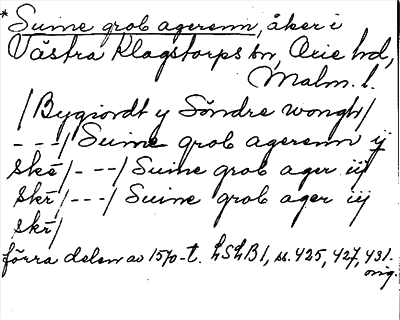 * Suine grob agerenn, åker i
Västra Klagstorps sn, Oxie hd,
Malm. l.
/Bygiordt y Söndre wongh/
---/Suine grob agerenn ij
skē/---/Suine grob ager iij
skr/---/Suine grob ager iij
skr/
förra delen av 1570-t. LSLB1, ss. 425, 427, 431.
orig.